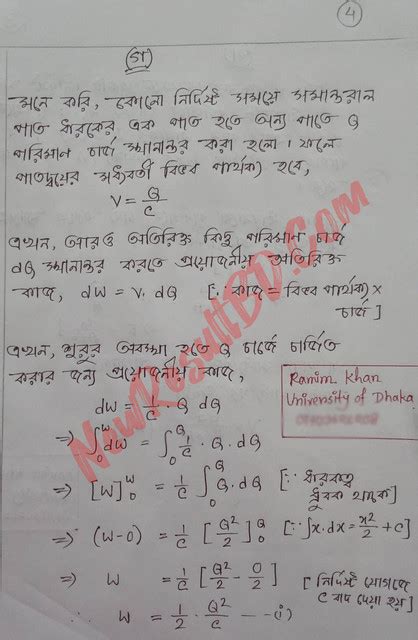 4
(গ)
মনে করি, কোনো নির্দিষ্ট সময়ে সমান্তরাল
পাত ধারকের এক পাত হতে অন্য পাতে Q
পরিমান চার্জ স্থানান্তর করা হলো। ফলে
পাতদ্বয়ের মধ্যবর্তী বিভব পার্থক্য হবে,
V = Q/C
এখন, আরও অতিরিক্ত কিছু পরিমান চার্জ
dQ স্থানান্তর করতে প্রয়োজনীয় অতিরিক্ত
কাজ, dW = V. dQ [∵ কাজ = বিভব পার্থক্য ×
চার্জ]
এখন, শুরুর অবস্থা হতে Q চার্জে চার্জিত
করার জন্য প্রয়োজনীয় কাজ,
Ranim Khan
University of Dhaka
dW = 1/C · Q dQ
⇒ ∫₀^W dW = ∫₀^Q 1/C · Q · dQ
⇒ [W]₀^W = 1/C ∫₀^Q Q · dQ [∵ ধারকত্ব
ধ্রুবক থাকে]
⇒ (W-0) = 1/C [Q²/2]₀^Q [∵ ∫x.dx = x²/2 + c]
⇒ W = 1/C [Q²/2 - 0/2] [নির্দিষ্ট যোগজে
c বাদ দেয়া হয়]
∴ W = 1/2 · Q²/C --- (i)
NewResultBD.Com